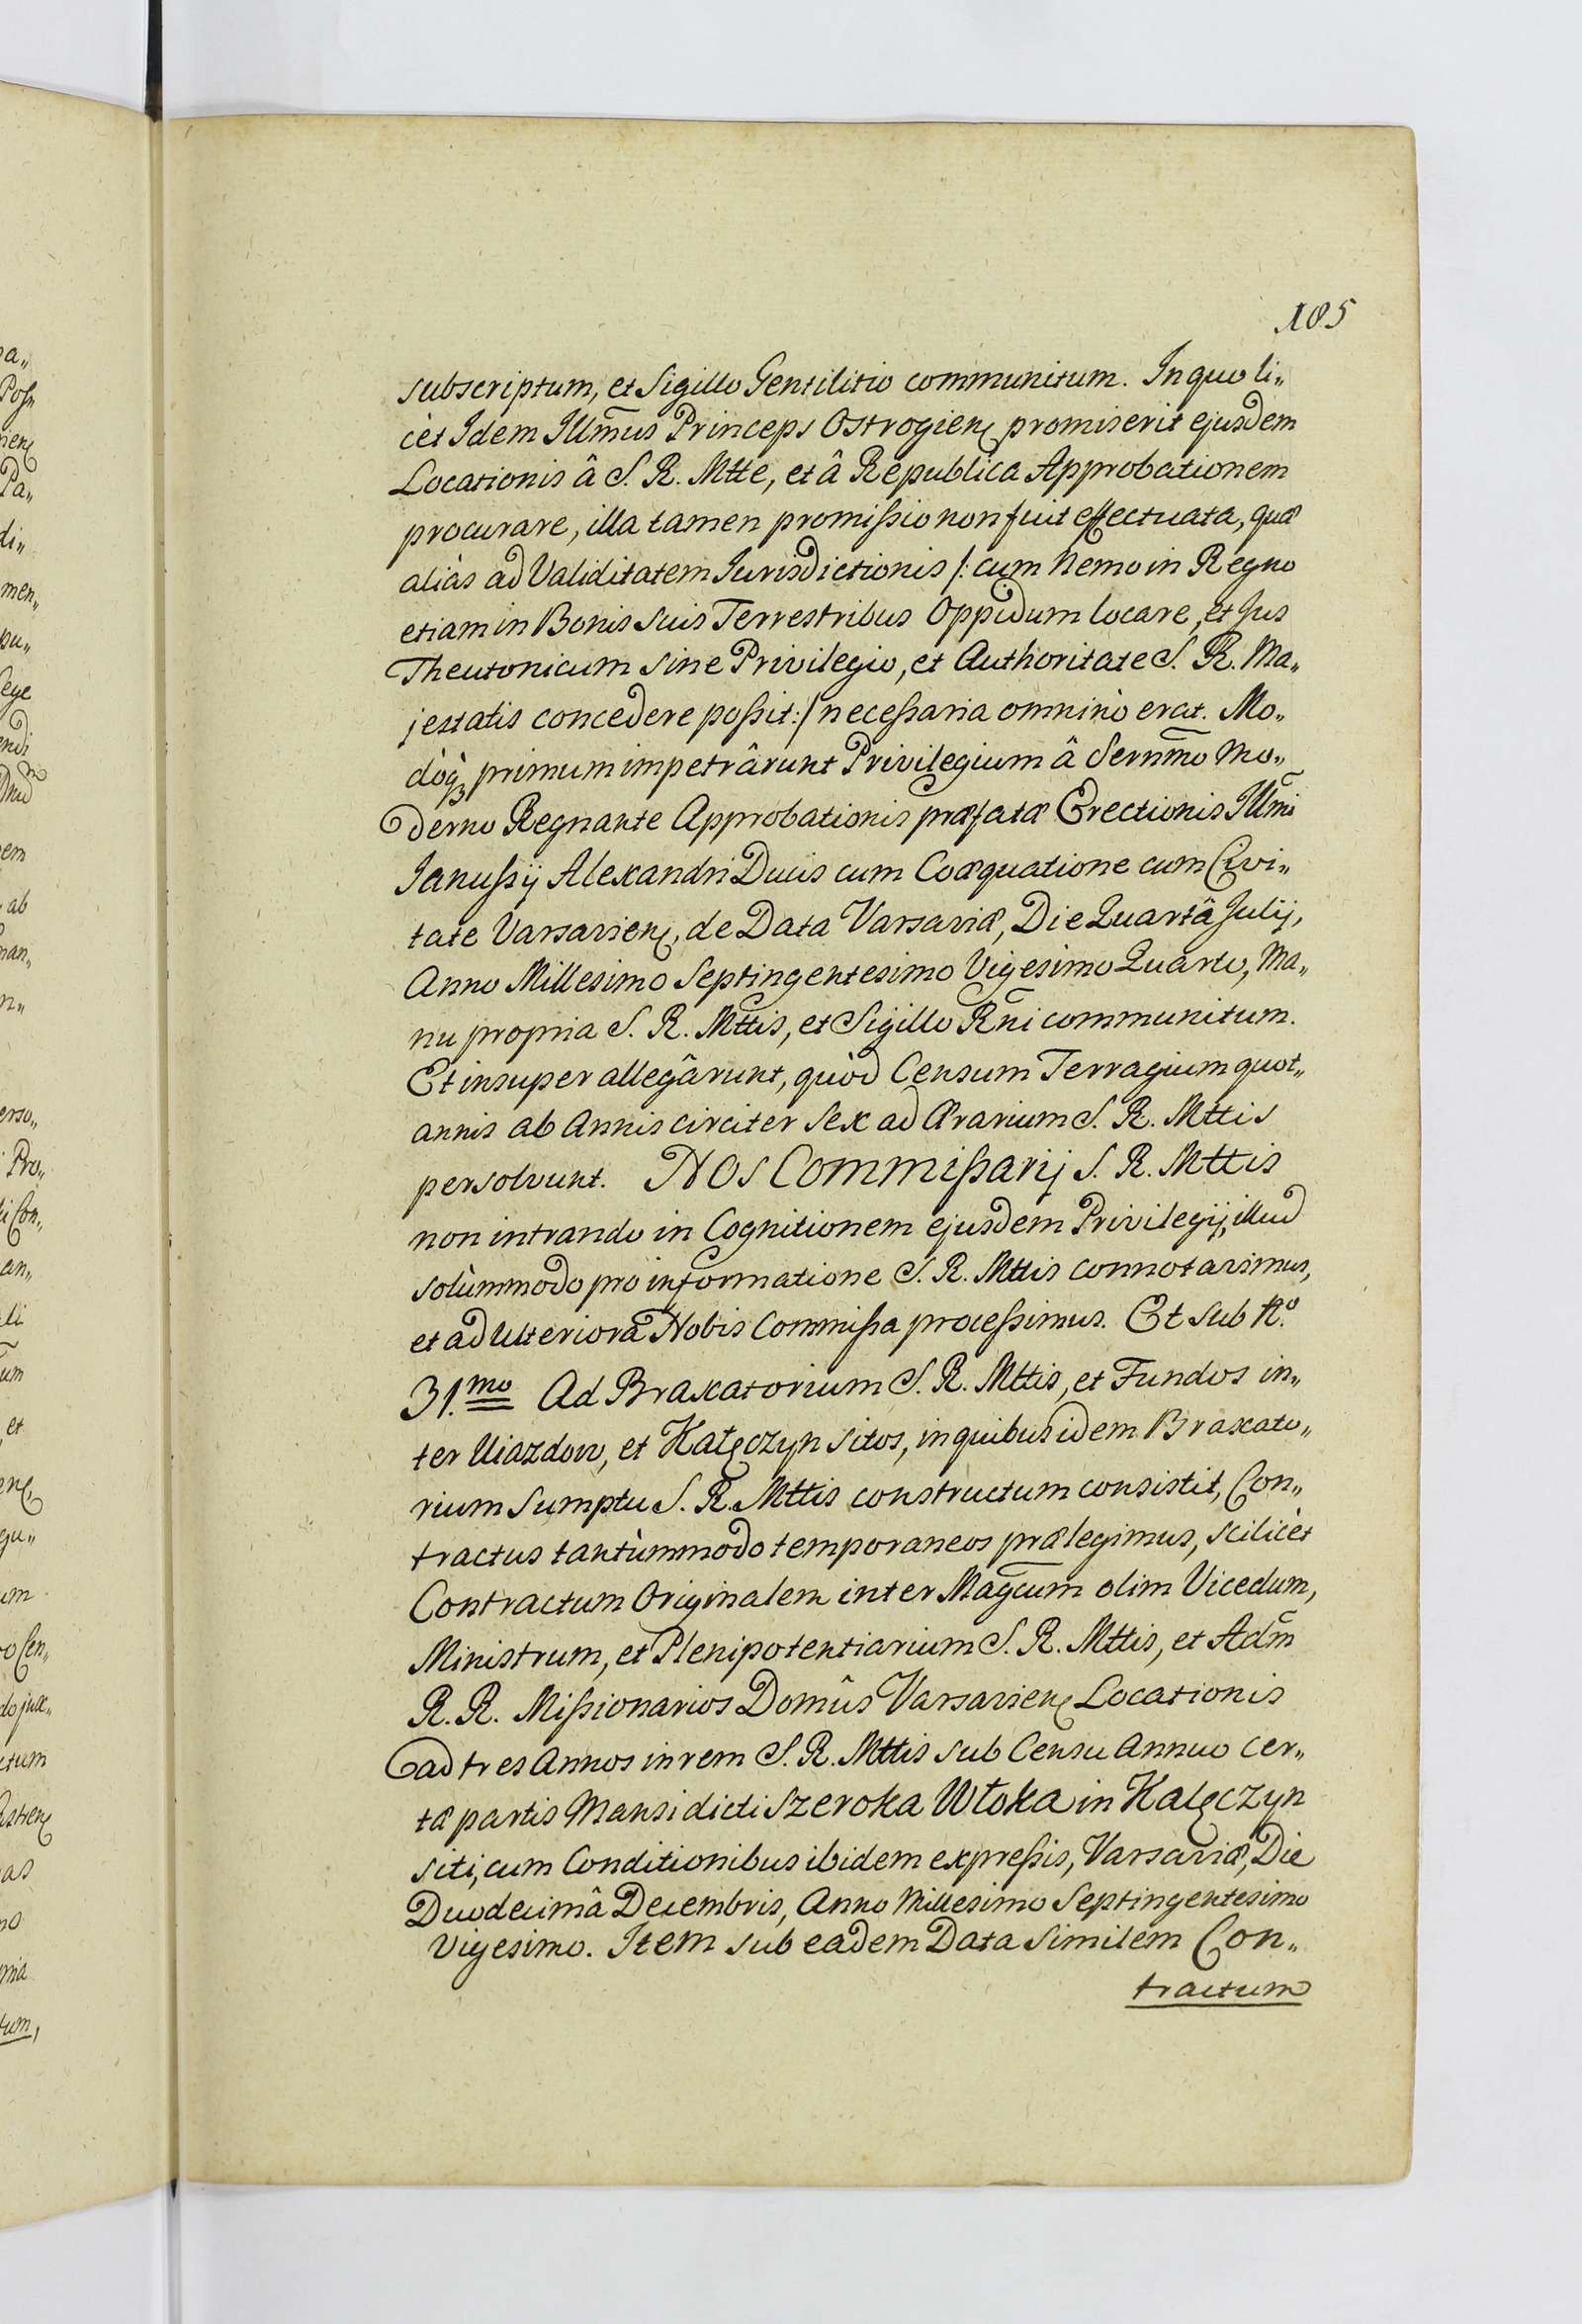 105
subscriptum, et Sigillo Gentilitio communitum. In quo li„
cèt Idem Illm̃us Princeps Ostrogien̨ promiserit ejusdem
Locationis â S. R. Mtte, et â Republica Approbationem
procurare, illa tamen promißio non fuit effectuata, quæ
aliàs ad Validitatem Jurisdictionis /: cum Nemo in Regno
etiam in Bonis suis Terrestribus Oppidum locare, et Jus
Theutonicum sine Privilegio, et Authoritate S. R. Ma„
jestatis concedere poßit :/ neceßaria omninò erat. Mo„
dòq̨ primum impetrârunt Privilegium â Sernm̃o Mo„
derno Regnante Approbationis præfatæ Erectionis Illm̃i
Janußij Alexandri Ducis cum Coæquatione cum Civi„
tate Varsavien̨, de Data Varsaviæ, Die Quartâ Julij,
Anno Millesimo Septingentesimo Vigesimo Quarto, Ma„
nu propria S. R. Mttis, et Sigillo Rñi communitum.
Et insuper allegârunt, quòd Censum Terragium quot„
annis ab Annis circiter Sex ad Ærarium S. R. Mttis
persolvunt. Nos Commißarij S. R. Mttis
non intrando in Cognitionem ejusdem Privilegij, illud
solùmmodo pro informatione S. R. Mttis connotavimus,
et ad Ulteriora Nobis Commißa proceßimus. Et Sub No.
31.mo Ad Braxatorium S. R. Mttis, et Fundos in„
ter Uiazdow, et Kalęczyn sitos, in quibus idem Braxato„
rium Sumptu S. R. Mttis constructum consistit, Con„
tractus tantùmmodo temporaneos prælegimus, scilicèt
Contractum Originalem inter Magc̃um olim Vicedum,
Ministrum, et Plenipotentiarium S. R. Mttis, et Adm̃
R. R. Mißionarios Domûs Varsavien̨ Locationis
ad tres Annos in rem S. R. Mttis sub Censu Annuo cer„
tæ partis Mansi dicti Szeroka Włoka in Kalęczyn
siti, cum Conditionibus ibidem expreßis, Varsaviæ, Die
Duodecimâ Decembris, Anno Millesimo Septingentesimo
Vigesimo. Item sub eadem Data Similem Con„
tractum